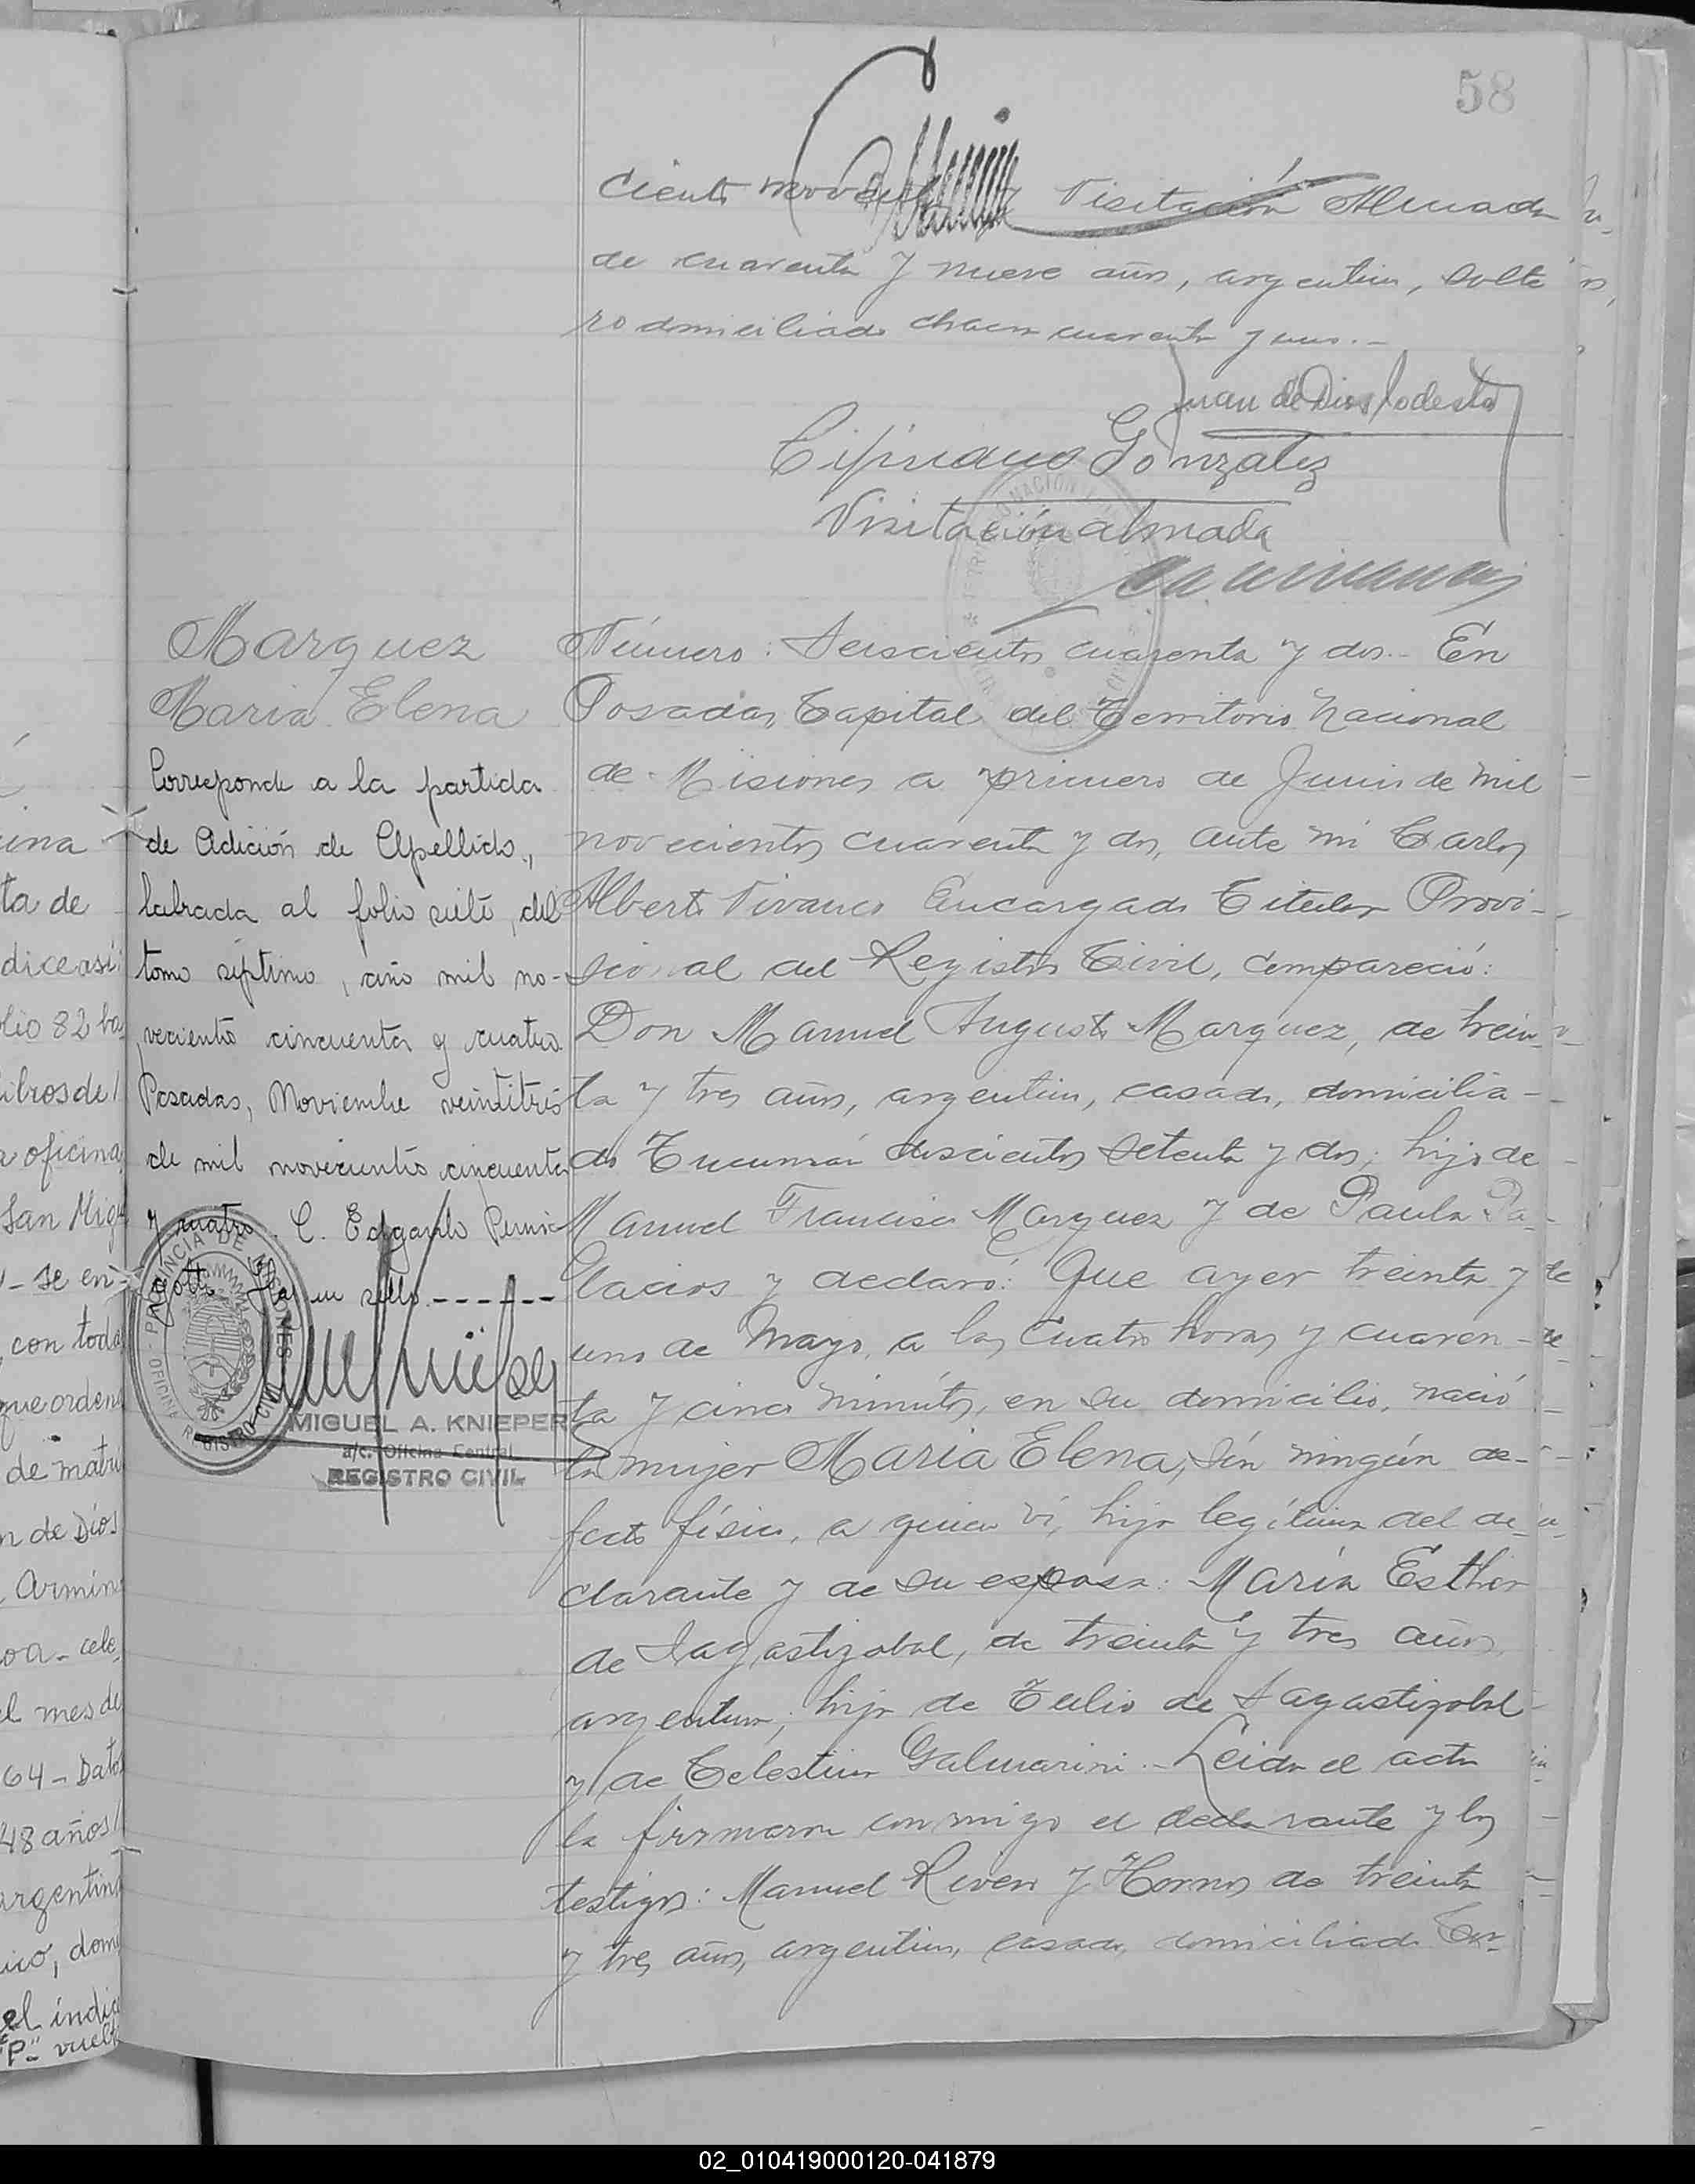 58
Ciento noventa y Visitación Almada
de cuarenta y nueve años, argentino, solte
ro domiciliado chacra cuarenta y uno.-
Juan de Dios Modesto
Cipriano Gonzalez
Visitación almada
Marquez
Maria Elena
Corresponde a la partida
de Adición de Apellido,
labrada al folio siete, del
tomo séptimo, año mil no-
vecientos cincuenta y cuatro
Posadas, Noviembre veintitrés
de mil novecientos cincuenta
y cuatro. C. Edgardo
Hay un sello.------
PROVINCIA DE MISIONES
OFICINA REGISTRO CIVIL
MIGUEL A. KNIEPER
a/c. Oficina Central
REGISTRO CIVIL
Número: Seiscientos cuarenta y dos.- En
Posadas, Capital del Territorio Nacional
de Misiones a primero de Junio de mil
novecientos cuarenta y dos, ante mi Carlos
Alberto Vivanco Encargado Titular Provi-
sional del Registro Civil, compareció:
Don Manuel Augusto Marquez, de trein-
ta y tres años, argentino, casado, domicilia-
do Tucumán doscientos setenta y dos; hijo de
Manuel Francisco Marquez y de Paula Pa-
lacios y declaró: Que ayer treinta y
uno de Mayo, a las cuatro horas y cuaren-
ta y cinco minutos, en su domicilio, nació
la mujer Maria Elena, sin ningún de-
fecto físico, a quien ví, hija legítima del de-
clarante y de su esposa: María Esther
de Sagastizabal, de treinta y tres años
argentina; hija de Tulio de Sagastizabal
y de Celestina Galmarini.- Leida el acta
la firmaron conmigo el declarante y los
testigos: Manuel Rivero y Hornos de treinta
y tres años, argentino, casado, domiciliado
ina
ta de
dice así:
lio 82
ibros de
a oficina
San Mig
- se en
, con toda
que orden
de matri
n de Dios
Armin
oa - cele
l mes de
64 - Dato
48 años
argentin
ico, dom
el indic
"P" vuelt
02_010419000120-041879